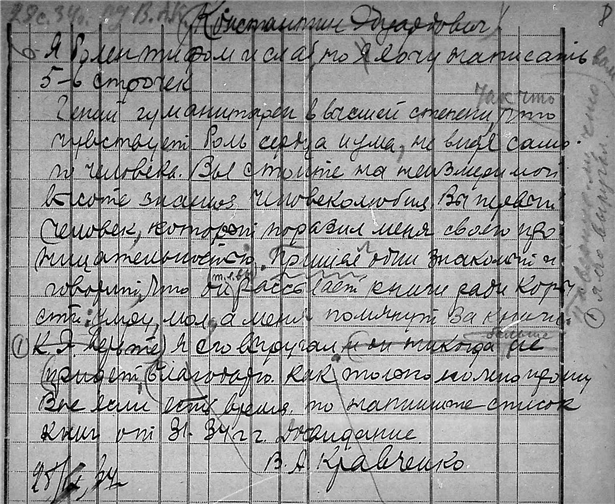 Константин Эдуардович!
Я болен тифом и слаб но я хочу написать вам
5-6 строчек
так что
Гений гуманитарен в высшей степени что
чувствует боль сердца и ума, не видя само-
го человека. Вы стоите на неизмеримой
высоте знания человеколюбия. Вы первый
человек, который поразил меня своею про
ницательностью. Пришел один знакомый и
говорит, что он рассылает книги ради коры
сти: умру, мол, а меня помянут за книги.
больше
К. Э. верьте, я его выругал и он никогда не
придет, благодарю. как только можно прошу
Вас если есть время, то напишите список
книг от 31-34 г г. До свидание
В. А Кравченко